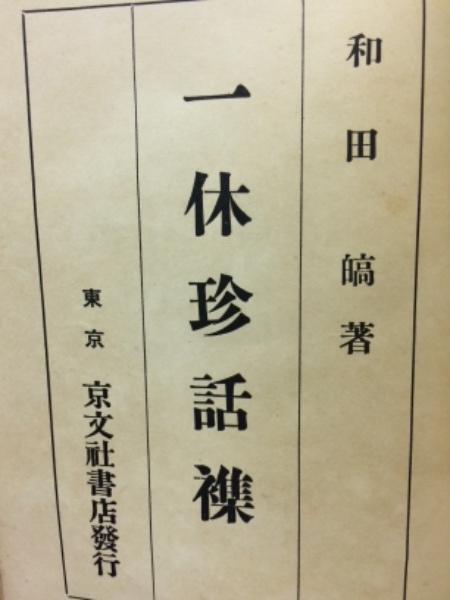 和田 皜著
一休珍話襍
東京 京文社書店發行